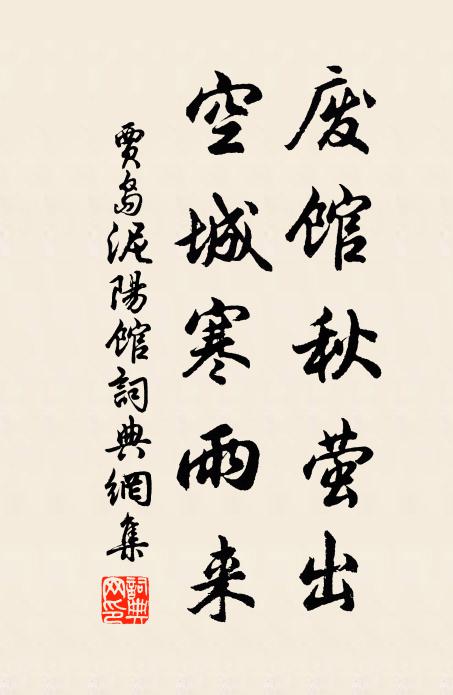 废馆秋萤出
空城寒雨来
賈島泥陽馆詞典網集
詞典
网印